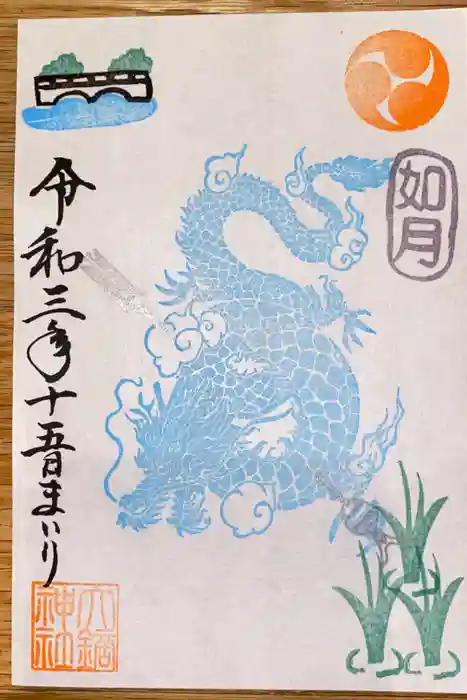 如月
令和三年十五日まいり
大鏑
神社